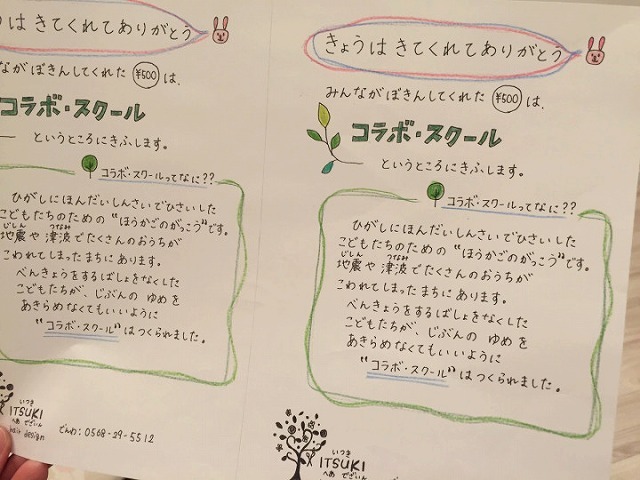 はきてくれてありがとう
ながぼきんしてくれた ¥500 は、
コラボ・スクール
というところにきふします。
コラボ・スクールってなに??
ひがしにほんだいしんさいでひさいした
こどもたちのための"ほうかごのがっこう"です。
じしん つなみ
地震や津波でたくさんのおうちが
こわれてしまったまちにあります。
べんきょうをするばしょをなくした
こどもたちが、じぶんの ゆめを
あきらめなくてもいいように
"コラボ・スクール"はつくられました。
いつき
ITSUKI
へあ でざいん
hair design
でんわ:0568-29-5512
きょうは きてくれてありがとう
みんながぼきんしてくれた ¥500 は、
コラボ・スクール
というところにきふします。
コラボ・スクールってなに??
ひがしにほんだいしんさいでひさいした
こどもたちのための"ほうかごのがっこう"です。
じしん つなみ
地震や津波でたくさんのおうちが
こわれてしまったまちにあります。
べんきょうをするばしょをなくした
こどもたちが、じぶんの ゆめを
あきらめなくてもいいように
"コラボ・スクール"はつくられました。
いつき
ITSUKI
へあ でざいん